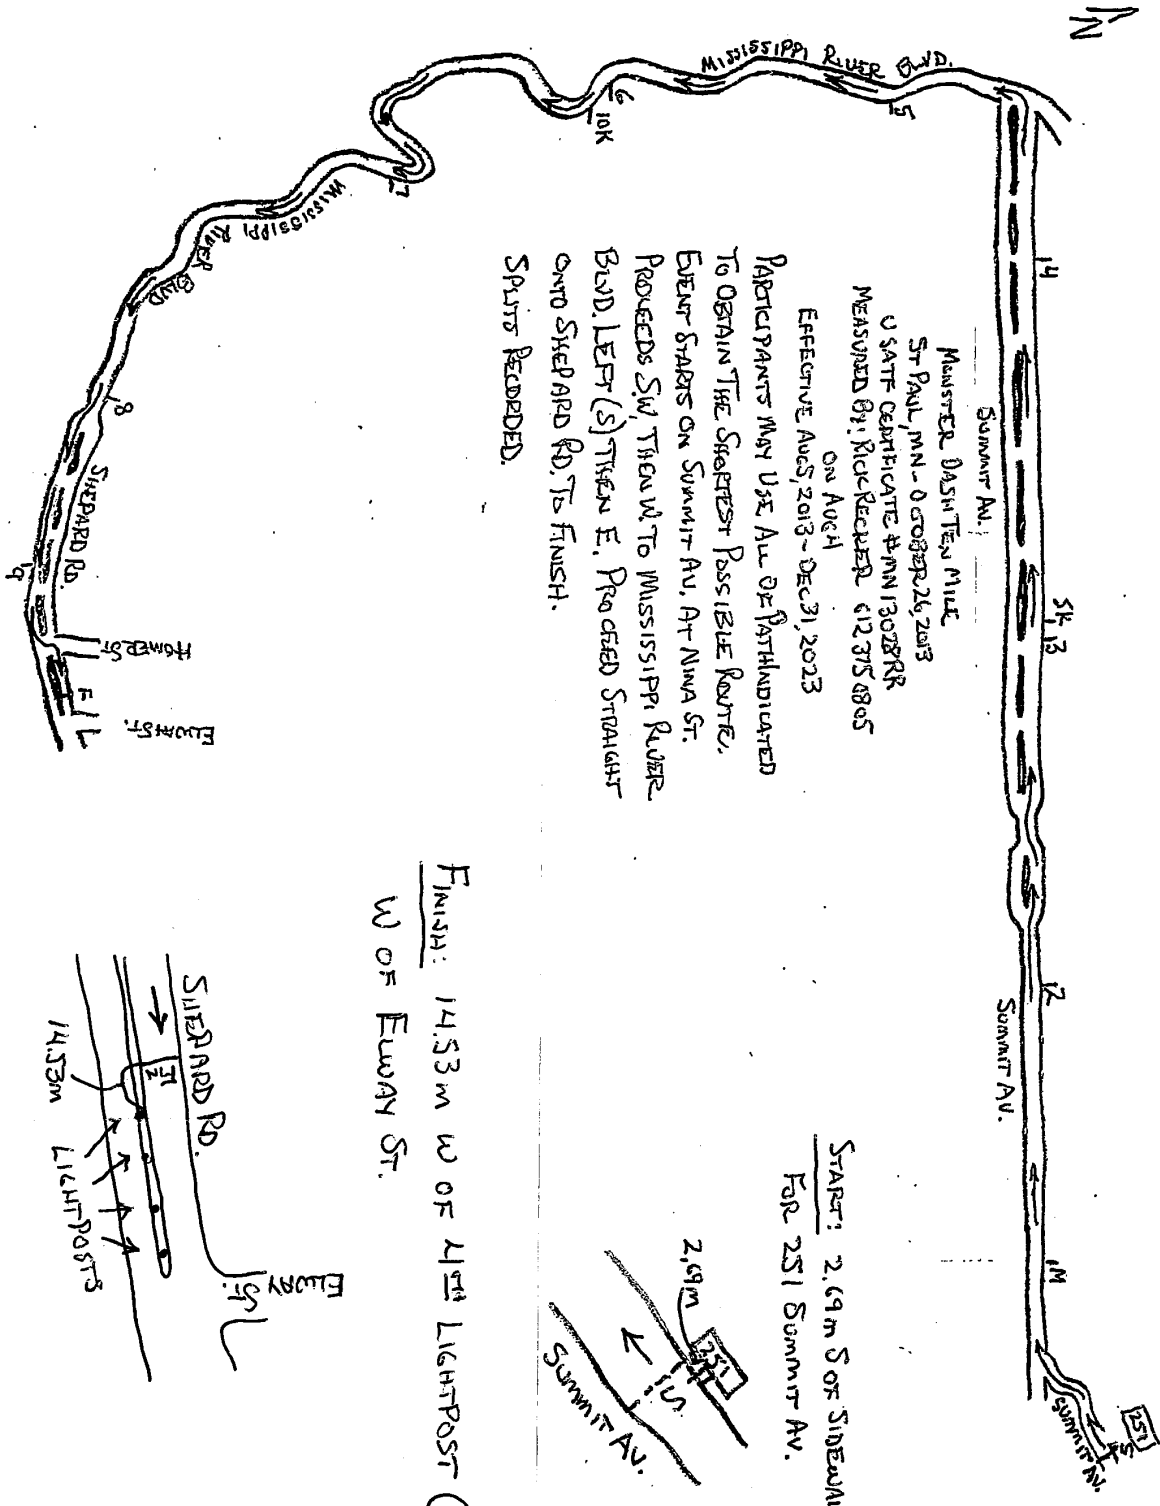 N
MISSISSIPPI RIVER BLVD.
5
6
10K
7
MISSISSIPPI RIVER BLVD
8
SHEPARD RD.
9
HOMER ST
F
ELWAY ST.
4
SUMMIT AV.
5K
3
2
SUMMIT AV.
1M
SUMMIT AV.
251
S
MONSTER DASH TEN MILE
ST PAUL, MN - OCTOBER 26, 2013
USATF CERTIFICATE #MN13028RR
MEASURED BY: RICK RECKER 612 375 0805
ON AUG 4
EFFECTIVE AUG 5, 2013 - DEC 31, 2023
PARTICIPANTS MAY USE ALL OF PATH INDICATED
TO OBTAIN THE SHORTEST POSSIBLE ROUTE.
EVENT STARTS ON SUMMIT AV. AT NINA ST.
PROCEEDS SW, THEN W. TO MISSISSIPPI RIVER
BLVD. LEFT (S) THEN E. PROCEED STRAIGHT
ONTO SHEPARD RD. TO FINISH.
SPLITS RECORDED.
START: 2.69m S OF SIDEWAL
FOR 251 SUMMIT AV.
2.69m
251
S
SUMMIT AV.
FINISH: 14.53m W OF 4TH LIGHTPOST (
W OF ELWAY ST.
SHEPARD RD.
ELWAY
ST.
FIN
14.53m
LIGHTPOSTS